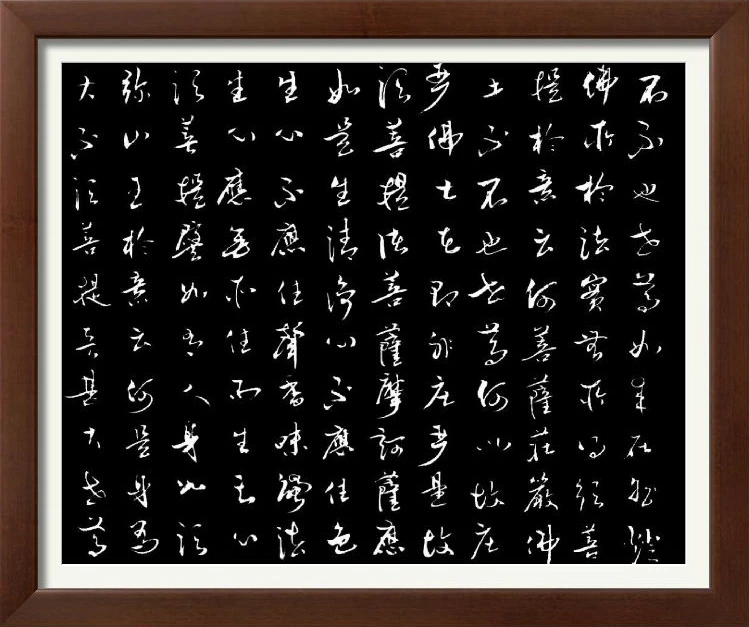 不不也世尊如来在然燈
佛所於法實無所得須菩
提於意云何菩薩莊嚴佛
土不不也世尊何以故庄
嚴佛土者即非庄嚴是故
須菩提諸菩薩摩訶薩應
如是生清淨心不應住色
生心不應住聲香味觸法
生心應無所住而生其心
須菩提譬如有人身如須
弥山王於意云何是身為
大不須菩提言甚大世尊